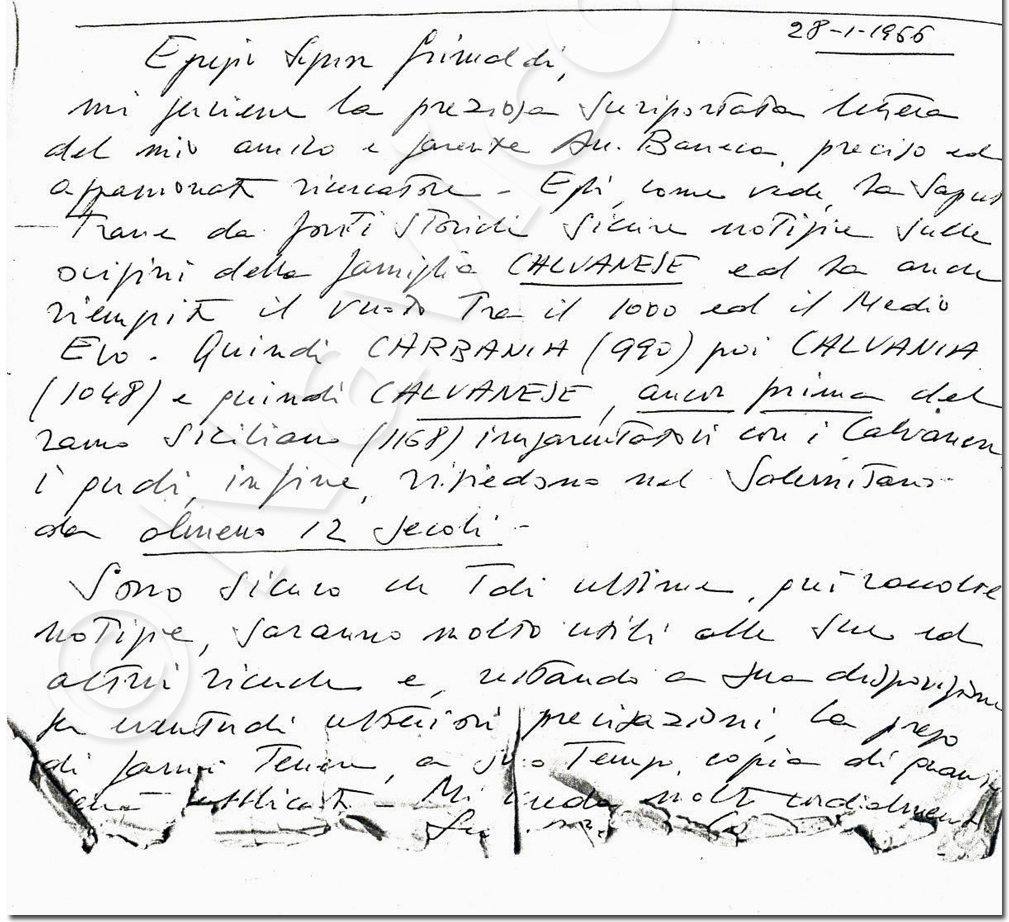 28-1-1966
Egregio Signor Grimaldi,
mi perviene la preziosa suriportata lettera
del mio amico e parente Avv. Baneca, preciso ed
appassionato ricercatore - Egli, come vede, ha saputo
trarre da fonti storiche sicure notizie sulle
origini della famiglia CALVANESE ed ha anche
riempito il vuoto tra il 1000 ed il Medio
Evo. Quindi CARBANIA (990) poi CALVANIA
(1048) e quindi CALVANESE, ancor prima del
ramo siciliano (1168) imparentatosi con i Calvanese
i quali, infine, risiedono nel Salernitano
da almeno 12 secoli -
Sono sicuro che tali ultime, qui raccolte
notizie, saranno molto utili alle sue ed
altrui ricerche e, restando a sua disposizione
per eventuali ulteriori precisazioni, La prego
di farmi tenere, a suo tempo, copia di quanto
sarà pubblicato - Mi creda molto cordialmente
Suo
© MgMcC